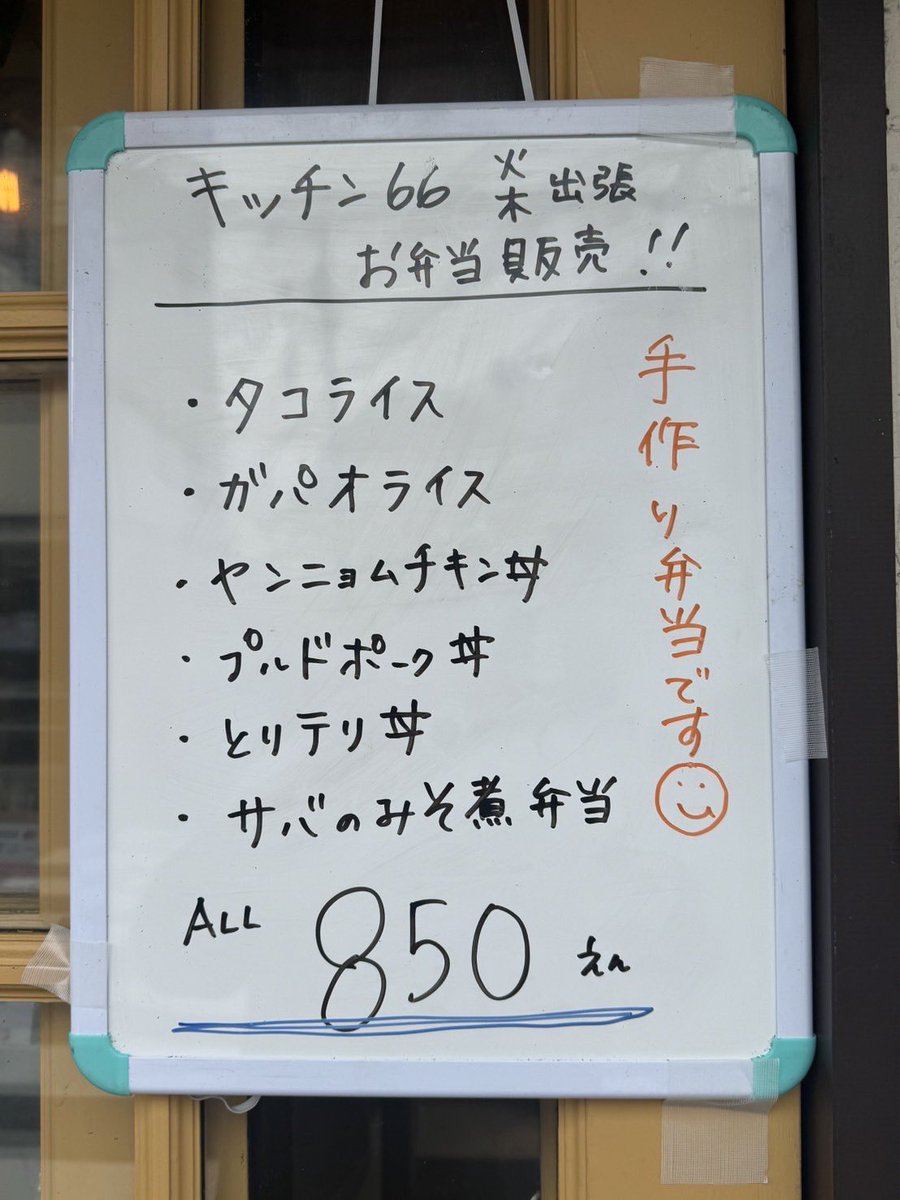 キッチン66 火木 出張
お弁当販売!!
・タコライス
・ガパオライス
・ヤンニョムチキン丼
・プルドポーク丼
・とりテリ丼
・サバのみそ煮弁当
手作り弁当です
ALL 850 えん